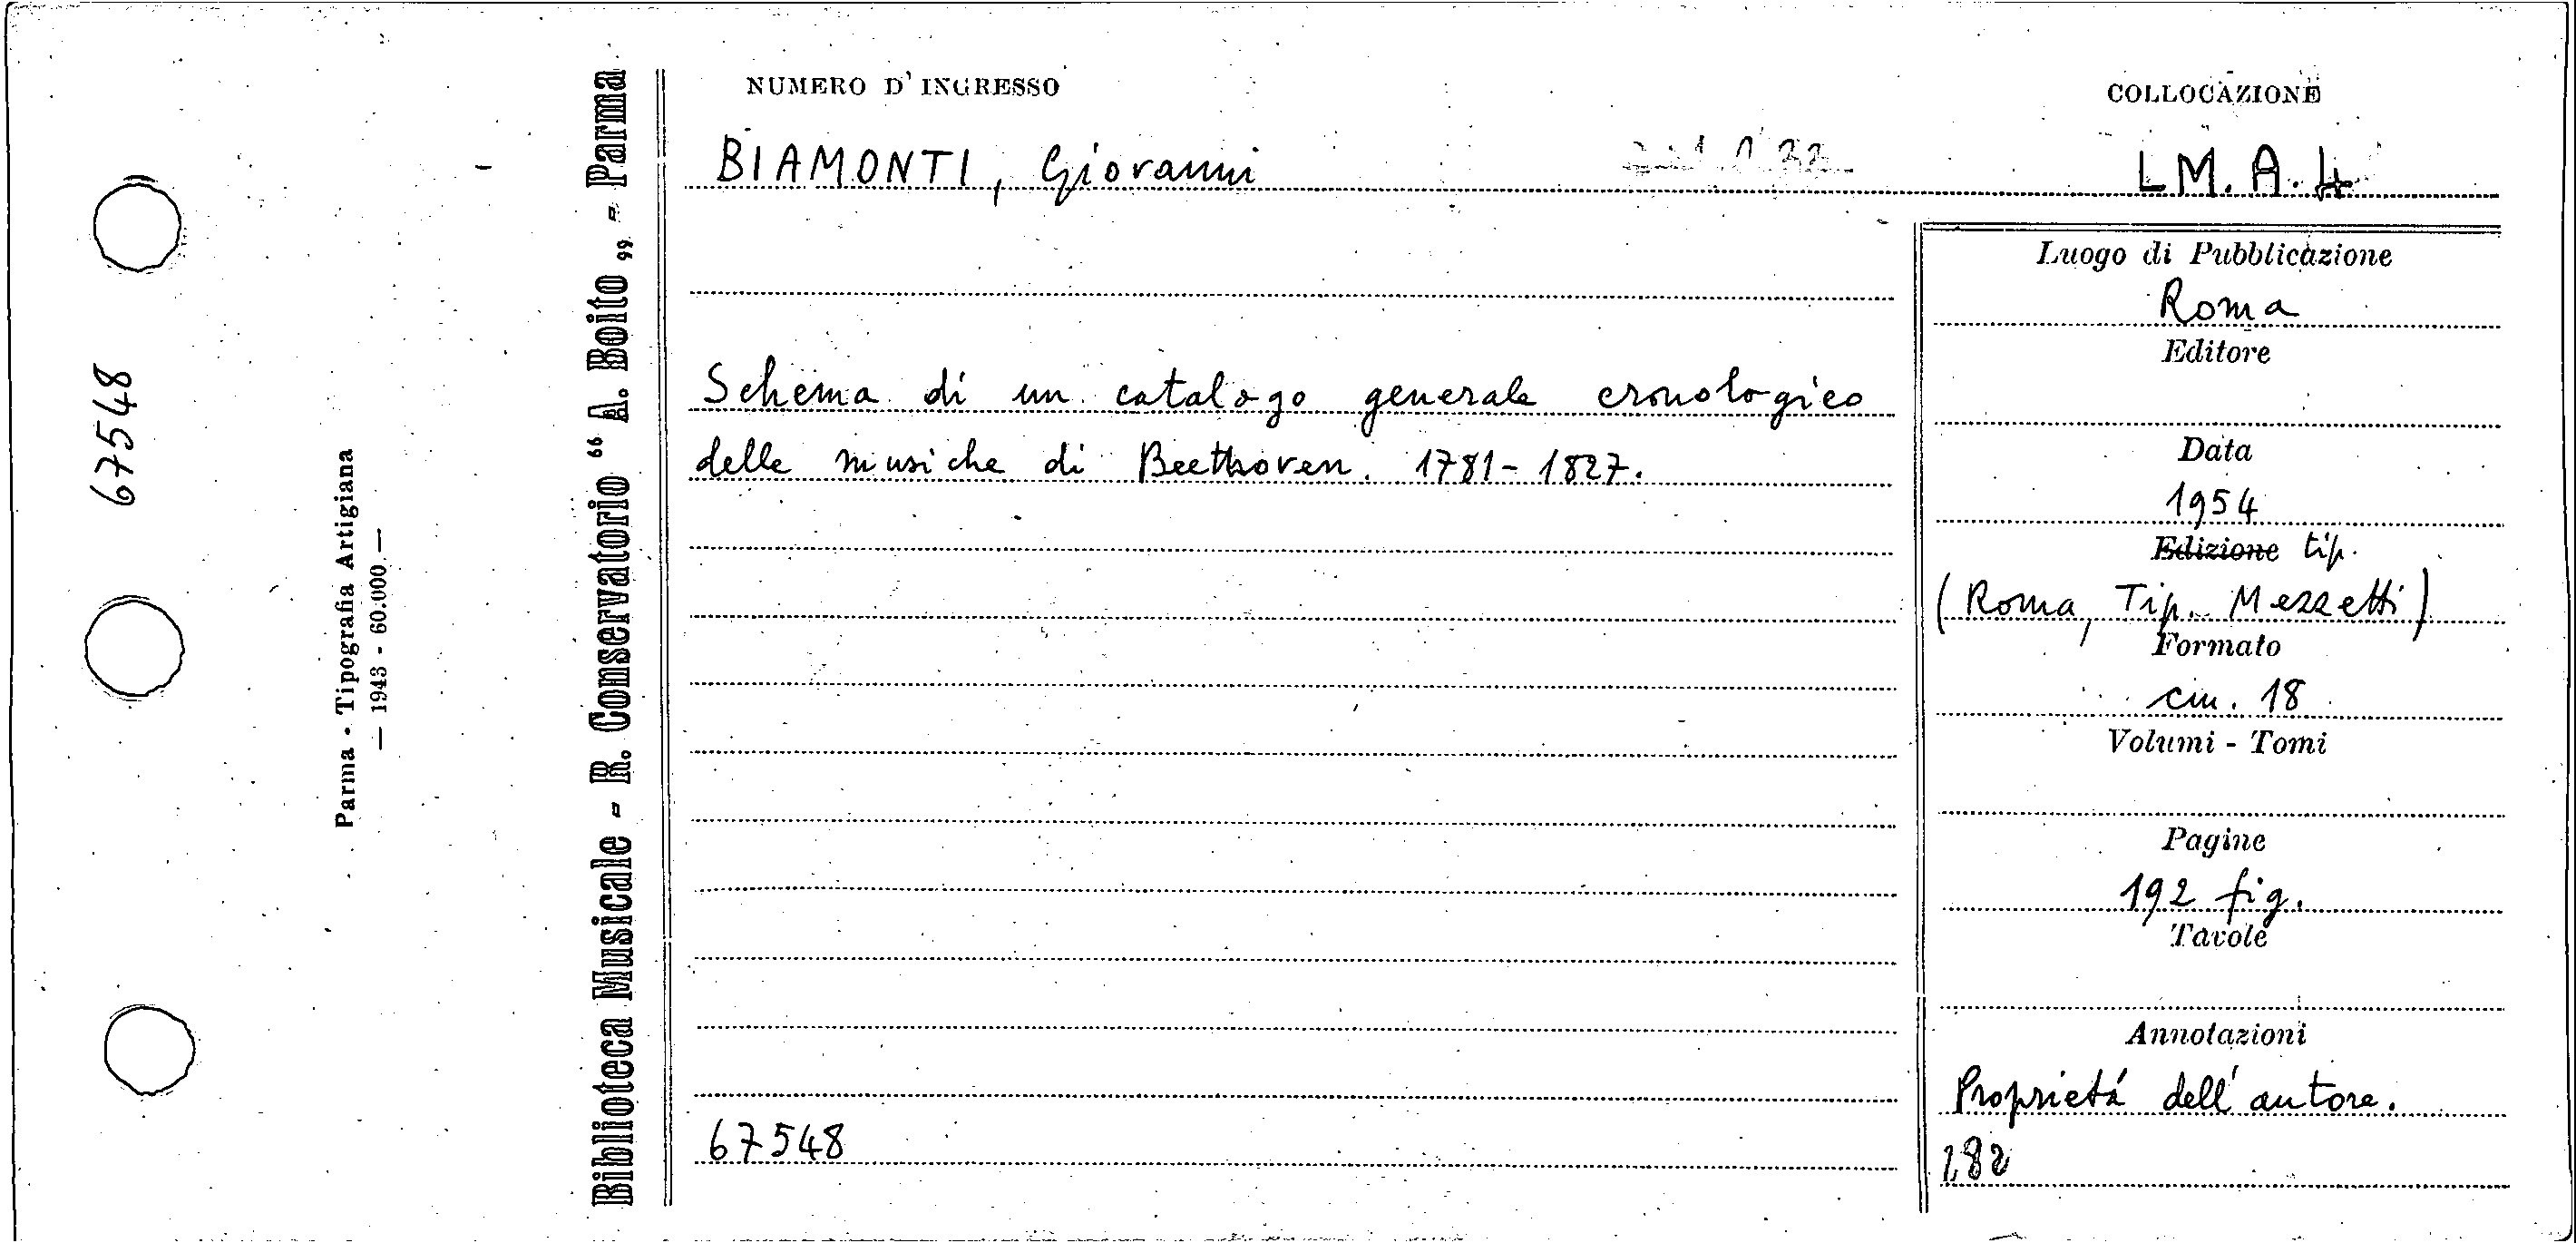 NUMERO D' INGRESSO
COLLOCAZIONE
BIAMONTI, Giovanni
LM. A. 4
Schema di un catalogo generale cronologico
delle musiche di Beethoven. 1781-1827.
67548
Luogo di Pubblicazione
Roma
Editore
Data
1954
Edizione tip.
(Roma, Tip. Mezzetti)
Formato
cm. 18
Volumi - Tomi
Pagine
192 fig.
Tavole
Annotazioni
Proprietá dell'autore.
182
Biblioteca Musicale - R. Conservatorio “ A. Boito „ - Parma
Parma - Tipografia Artigiana
— 1943 - 60.000 —
67548